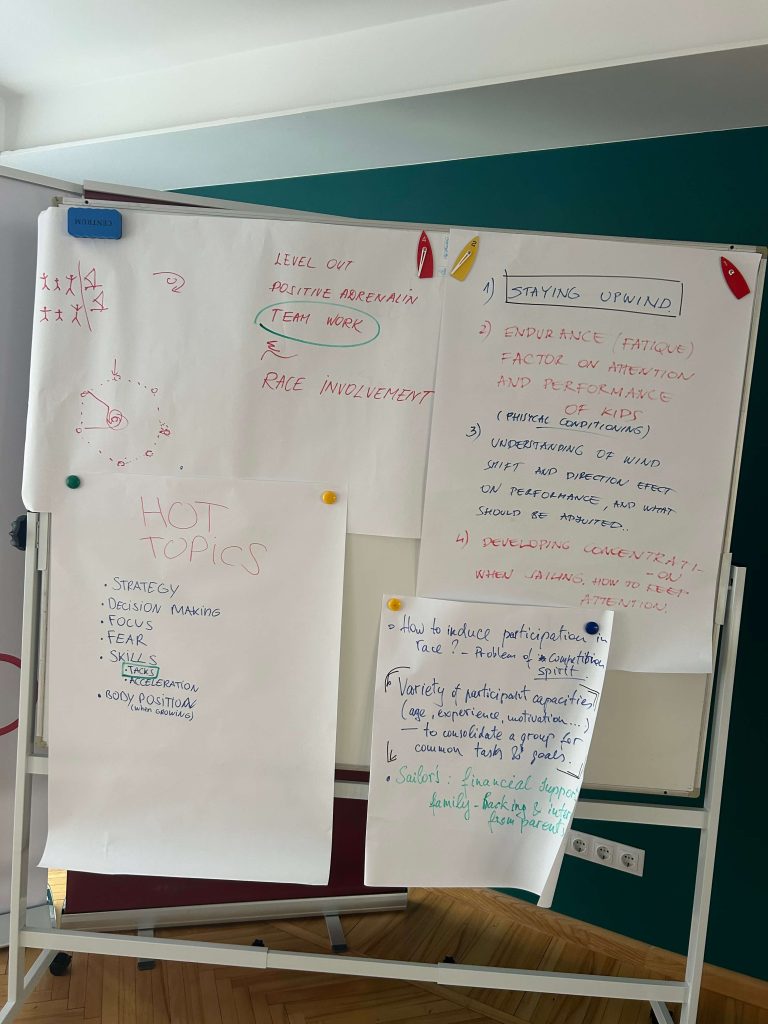 CENTRUM
LEVEL OUT
POSITIVE ADRENALIN
TEAM WORK
RACE INVOLVEMENT
1) STAYING UPWIND.
2) ENDURANCE (FATIQUE)
FACTOR ON ATTENTION
AND PERFORMANCE
OF KIDS
(PHISYCAL CONDITIONING)
3) UNDERSTANDING OF WIND
SHIFT AND DIRECTION EFECT
ON PERFORMANCE, AND WHAT
SHOULD BE ADJUTED..
4) DEVELOPING CONCENTRATI-
-ON
WHEN SAILING. HOW TO KEEP
ATTENTION.
HOT
TOPICS
• STRATEGY
• DECISION MAKING
• FOCUS
• FEAR
• SKILLS
• TACKS
• ACCELERATION
• BODY POSITION
(WHEN GROWING)
• How to induce participation in
race? - Problem of Competition
spirit.
Variety of participant capacities
(age, experience, motivation....)
— to consolidate a group for
common tasks & goals.
• Sailor's: financial support
family - Backing &
from parents